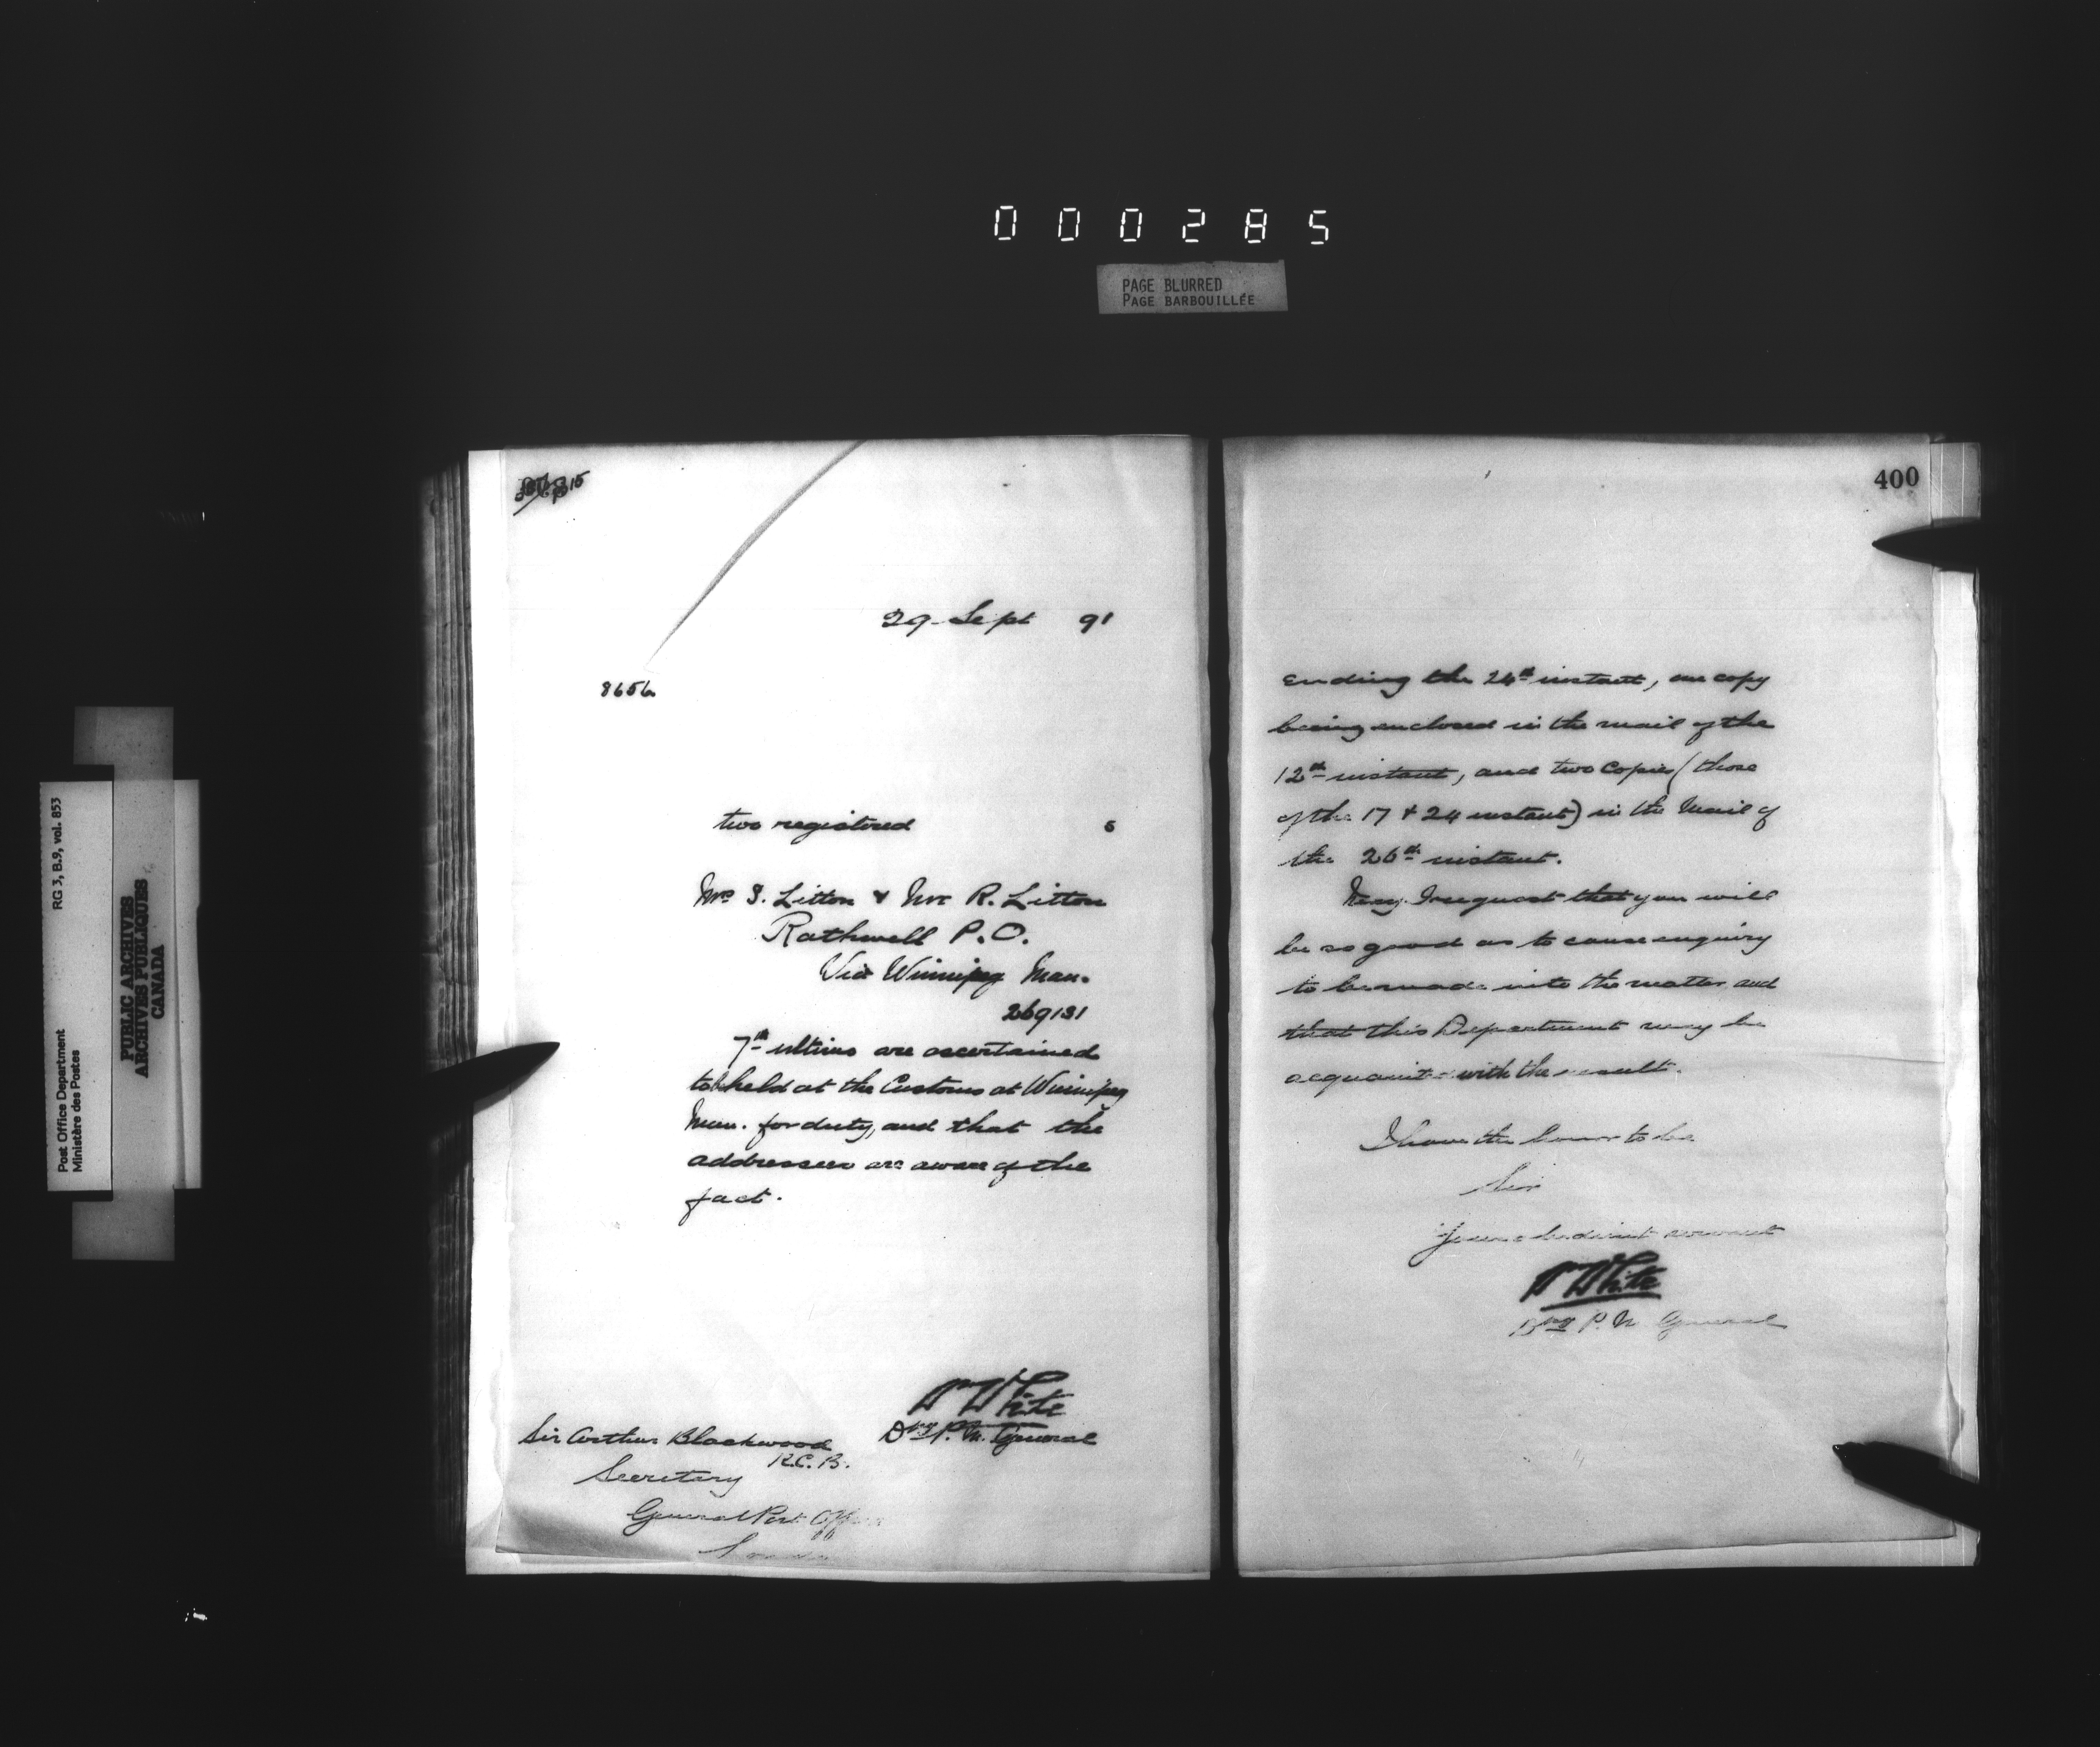 000285
PAGE BLURRED
PAGE BARBOUILLÉE
Post Office Department
Ministère des Postes
RG 3, B.9, vol. 853
PUBLIC ARCHIVES
ARCHIVES PUBLIQUES
CANADA
29 Sept 91
8656
two registered s
Mrs S. Litton & Mr R. Litton
Rathwell P.O.
Via Winnipeg Man.
269131
7th ultimo are ascertained
to be held at the Customs at Winnipeg
Man. for duty, and that the
addressees are aware of the
fact.
W White
Dpy P.M. General
Sir Arthur Blackwood
K.C.B.
Secretary
General Post Office
London
400
ending the 24th instant, one copy
being enclosed in the mail of the
12th instant, and two copies (those
of the 17 & 24 instant) in the Mail of
the 26th instant.
May I request that you will
be so good as to cause enquiry
to be made into the matter and
that this Department may be
acquainted with the result.
I have the honor to be
Sir
Your obedient servant
W White
Dpy P.M General